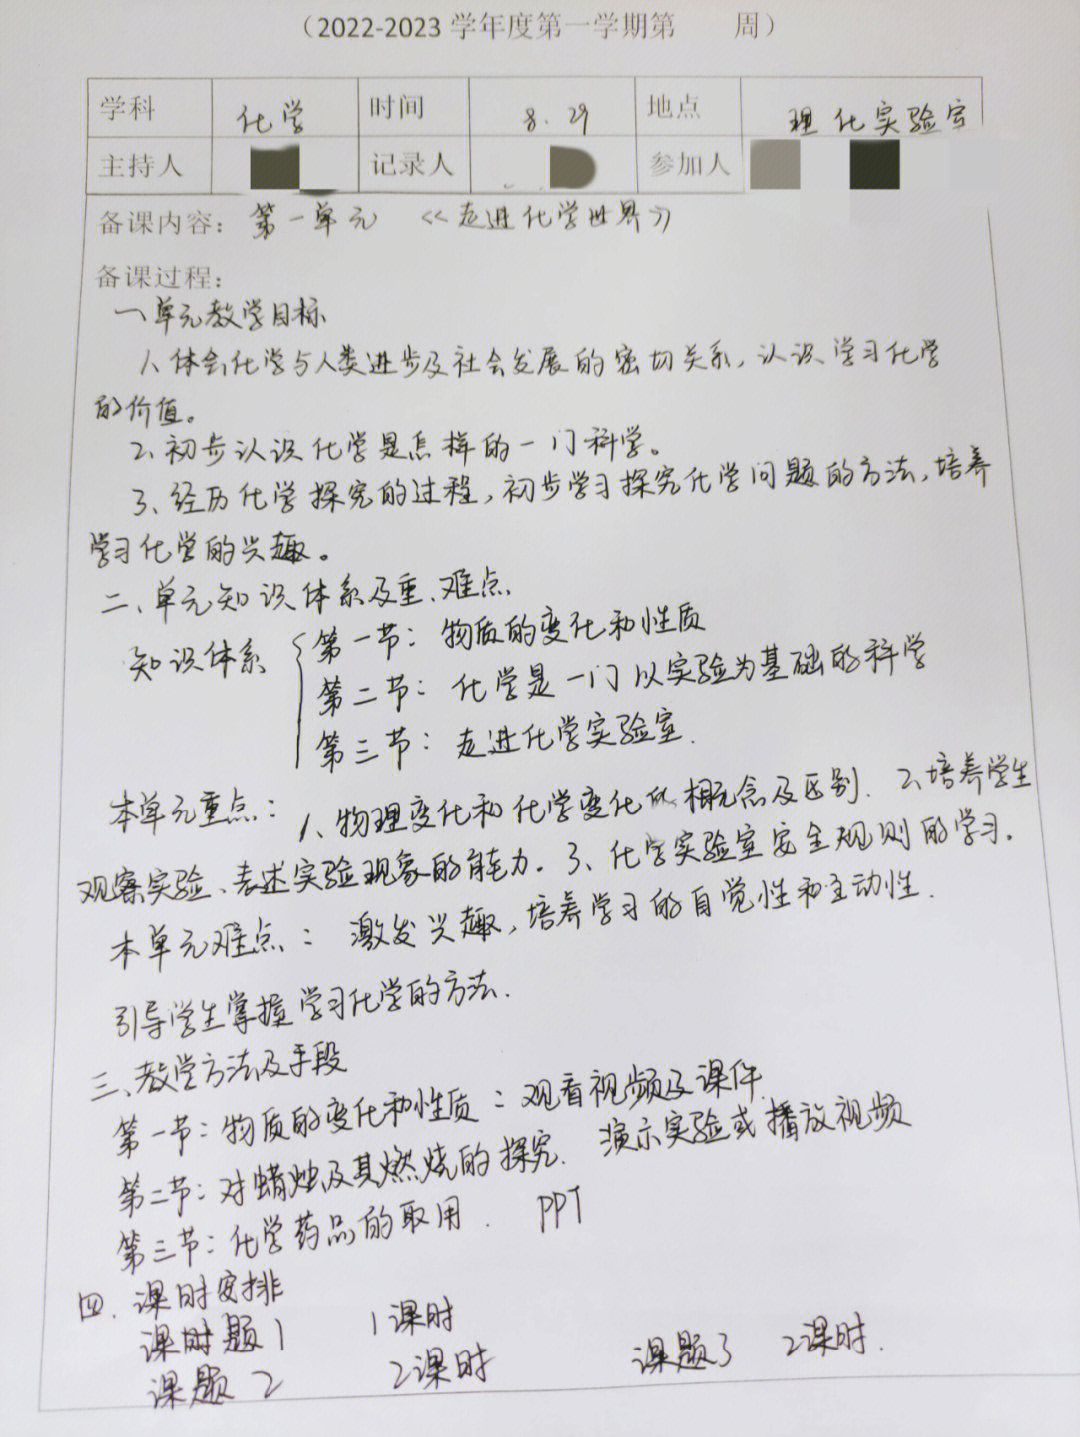 （2022-2023 学年度第一学期第 周）
学科 化学 时间 8.29 地点 理化实验室
主持人 记录人 参加人
备课内容：第一单元 《走进化学世界》
备课过程：
一、单元教学目标
1、体会化学与人类进步及社会发展的密切关系，认识学习化学
的价值。
2、初步认识化学是怎样的一门科学。
3、经历化学探究的过程，初步学习探究化学问题的方法，培养
学习化学的兴趣。
二、单元知识体系及重、难点
知识体系 第一节：物质的变化和性质
第二节：化学是一门以实验为基础的科学
第三节：走进化学实验室.
本单元重点：1、物理变化和化学变化的概念及区别. 2、培养学生
观察实验、表述实验现象的能力. 3、化学实验室安全规则的学习.
本单元难点：激发兴趣，培养学习的自觉性和主动性.
引导学生掌握学习化学的方法.
三、教学方法及手段
第一节：物质的变化和性质：观看视频及课件
第二节：对蜡烛及其燃烧的探究. 演示实验或播放视频
第三节：化学药品的取用. PPT
四. 课时安排
课时题1 1课时
课题2 2课时 课题3 2课时.